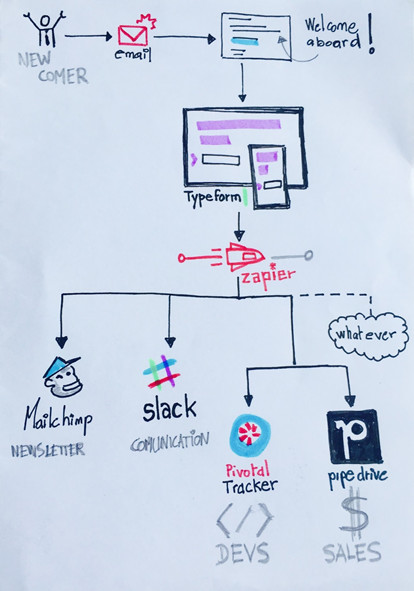 NEW
COMER
email
Welcome
aboard!
Typeform
zapier
whatever
Mailchimp
NEWSLETTER
slack
COMUNICATION
Pivotal
Tracker
</>
DEVS
p
pipedrive
$
SALES